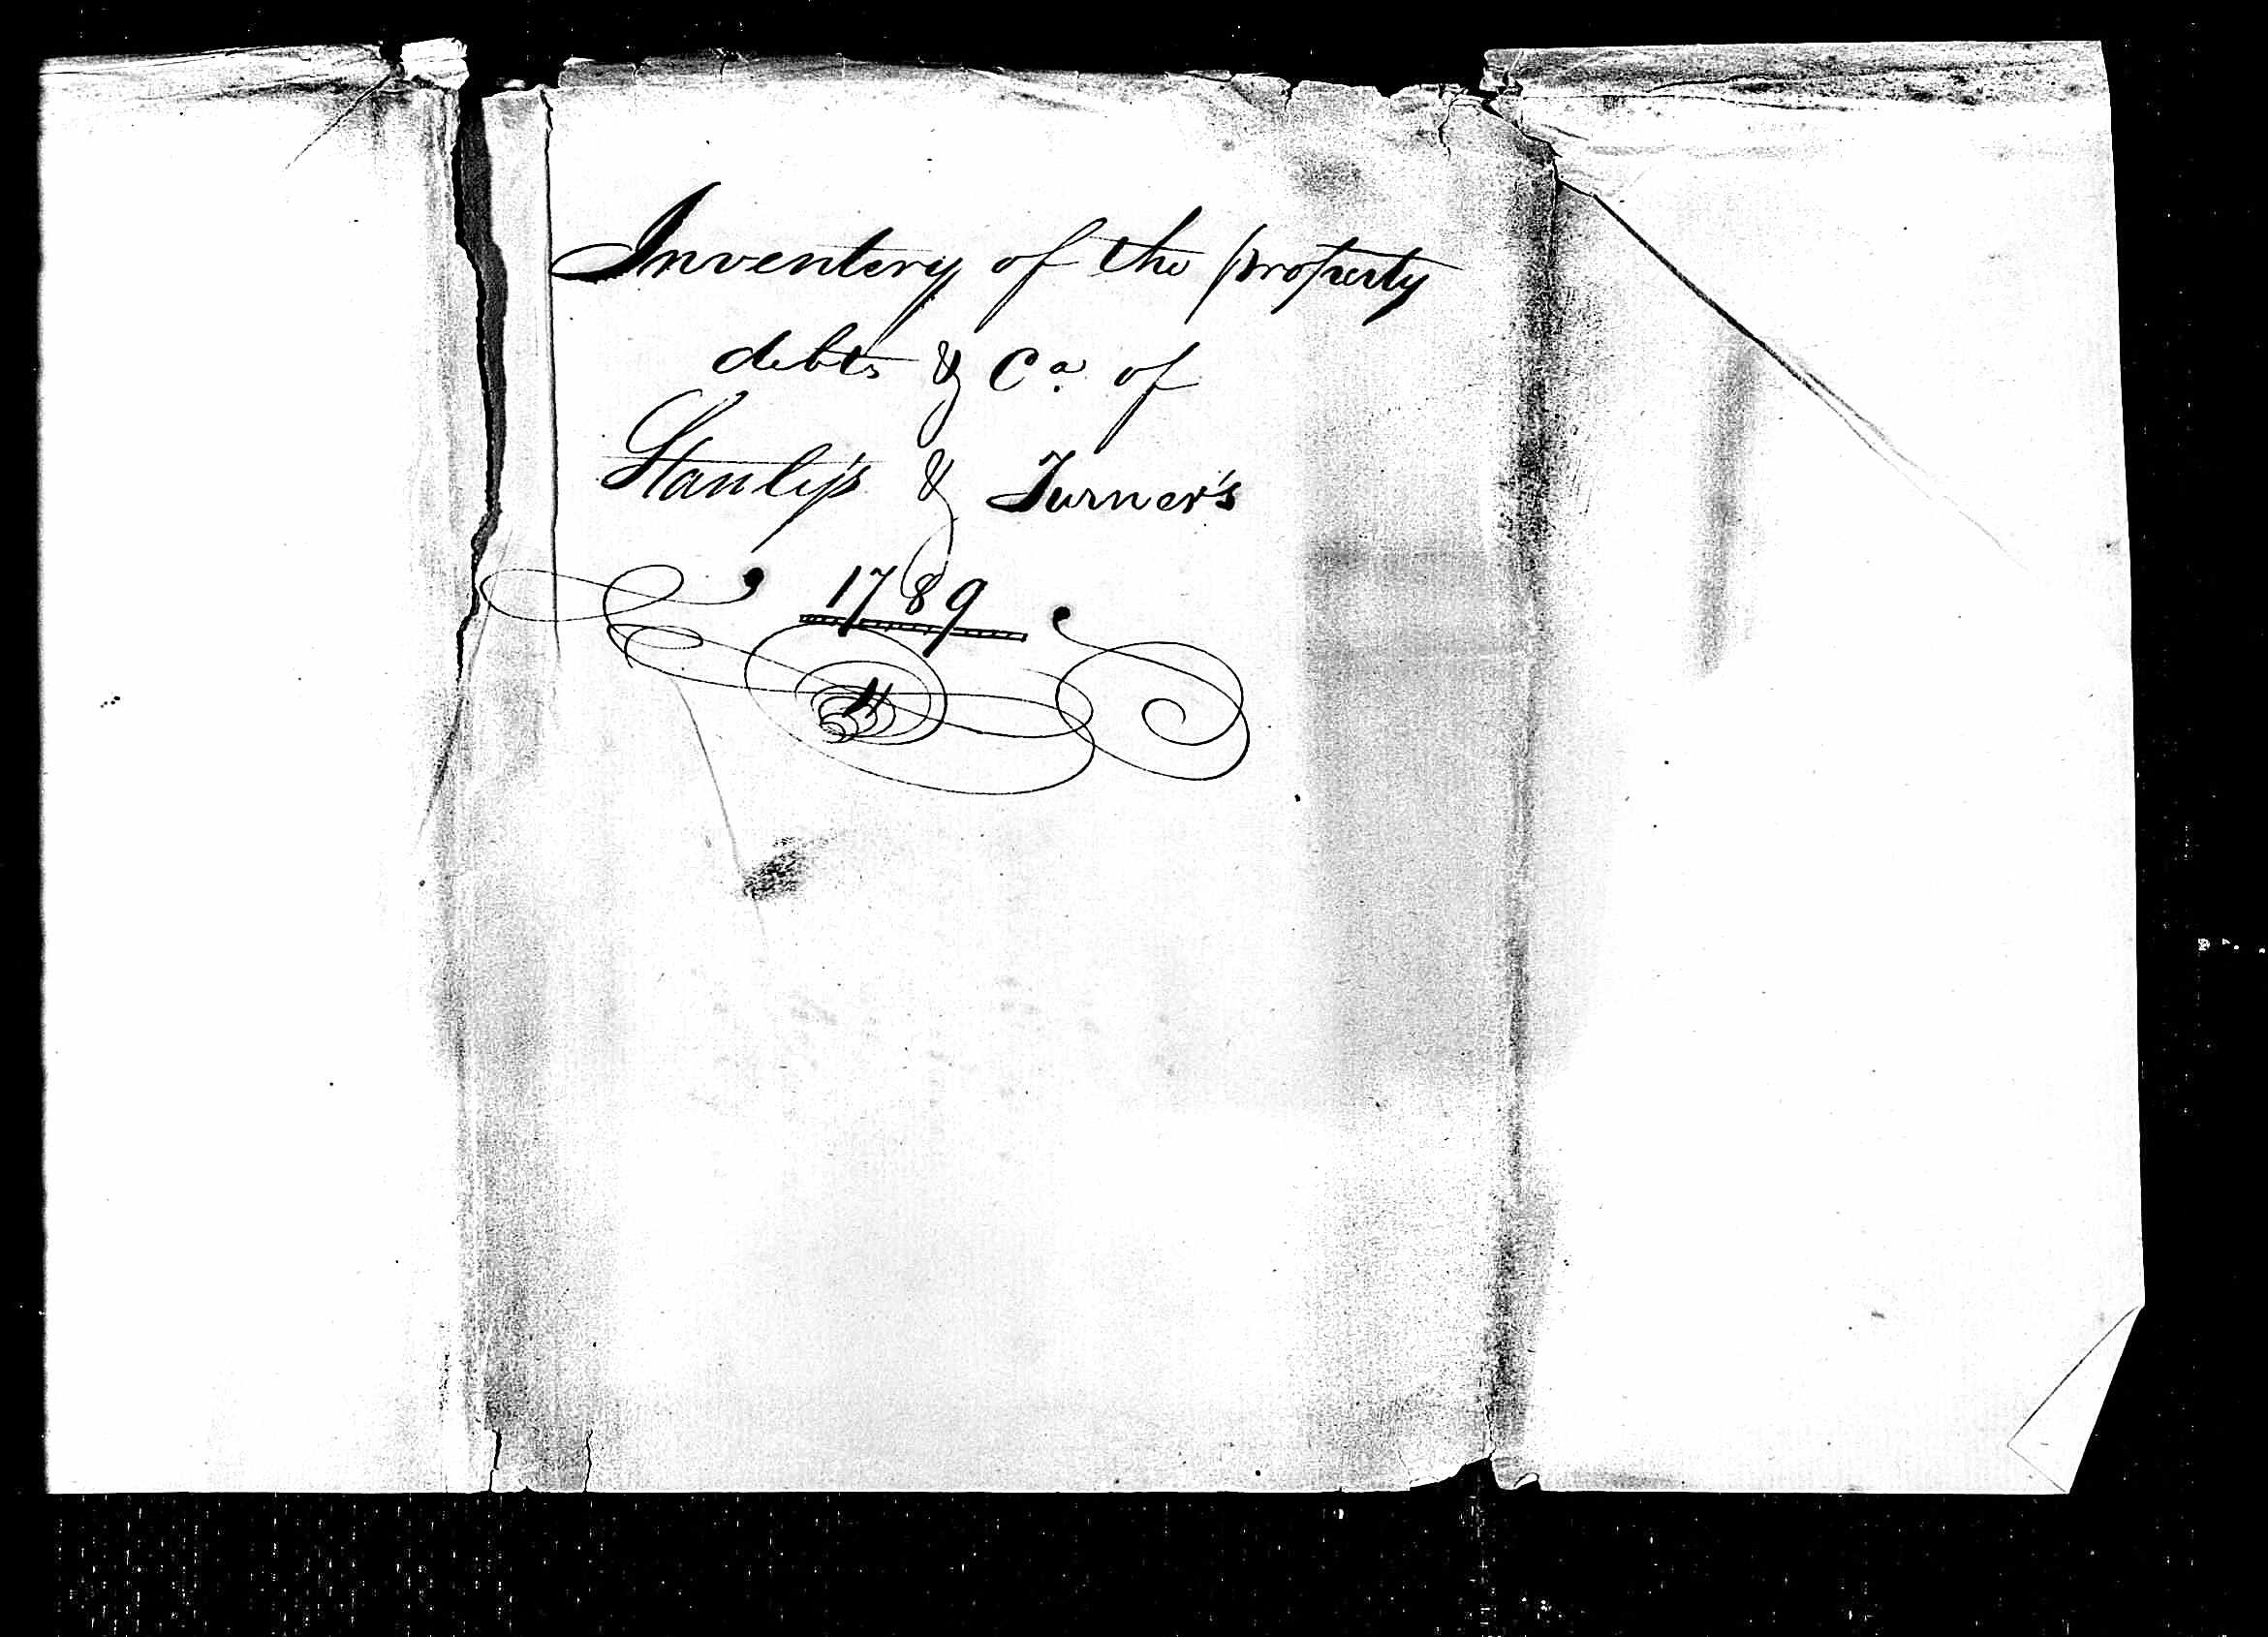 Inventory of the property
debts & Ca. of
Stanly's & Turner's
1789